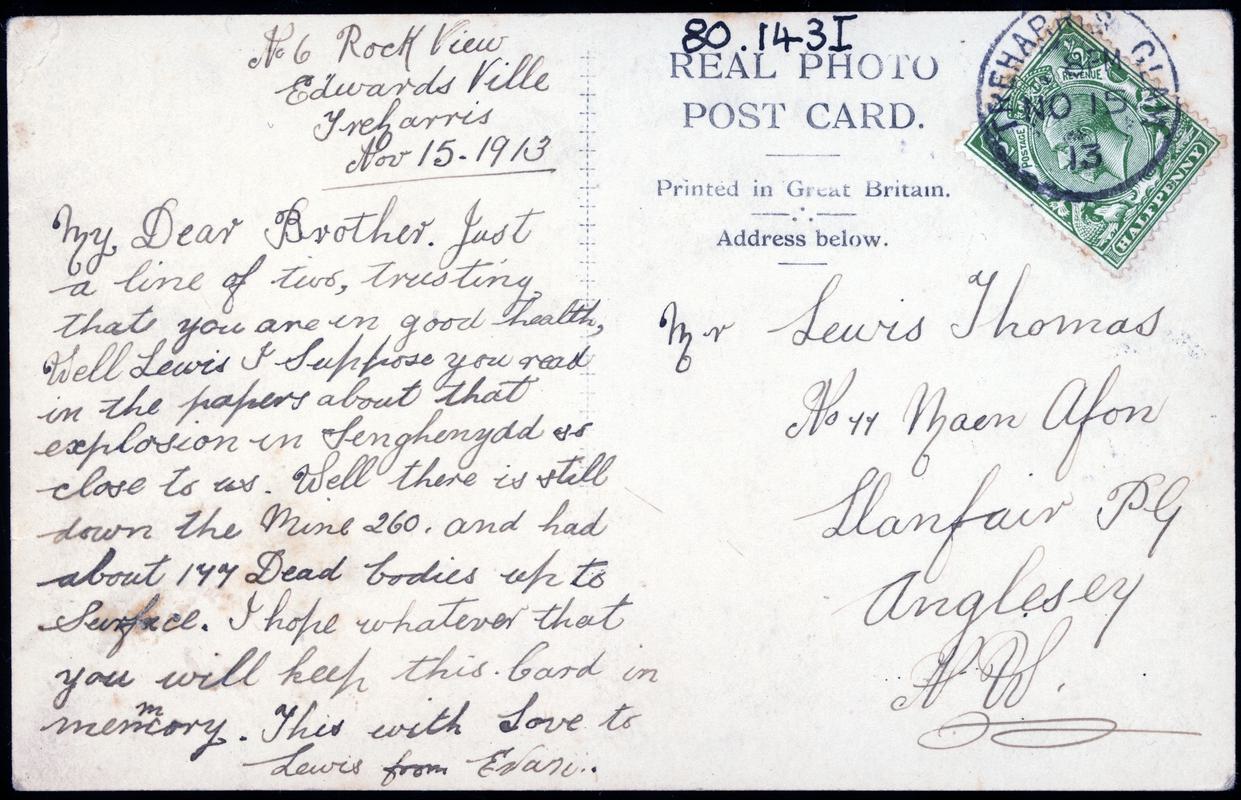 No 6 Rock View
Edwards Ville
Treharris
Nov 15-1913
My Dear Brother. Just
a line of two, trusting
thats you are in good health,
Well Lewis I Suppose you read
in the papers about that
explosion in Senghenydd so
close to us. Well there is still
down the Mine 260. and had
about 177 Dead bodies up to
Surface. I hope whatever that
you will keep this Card in
memmory. This with Love to
Lewis from Evan..
80.143I
REAL PHOTO
POST CARD.
Printed in Great Britain.
Address below.
TREHARRIS GLAM
PM
NO 15
13
POSTAGE
REVENUE
HALFPENNY
Mr Lewis Thomas
No 44 Maen Afon
Llanfair PG
Anglesey
N.W.